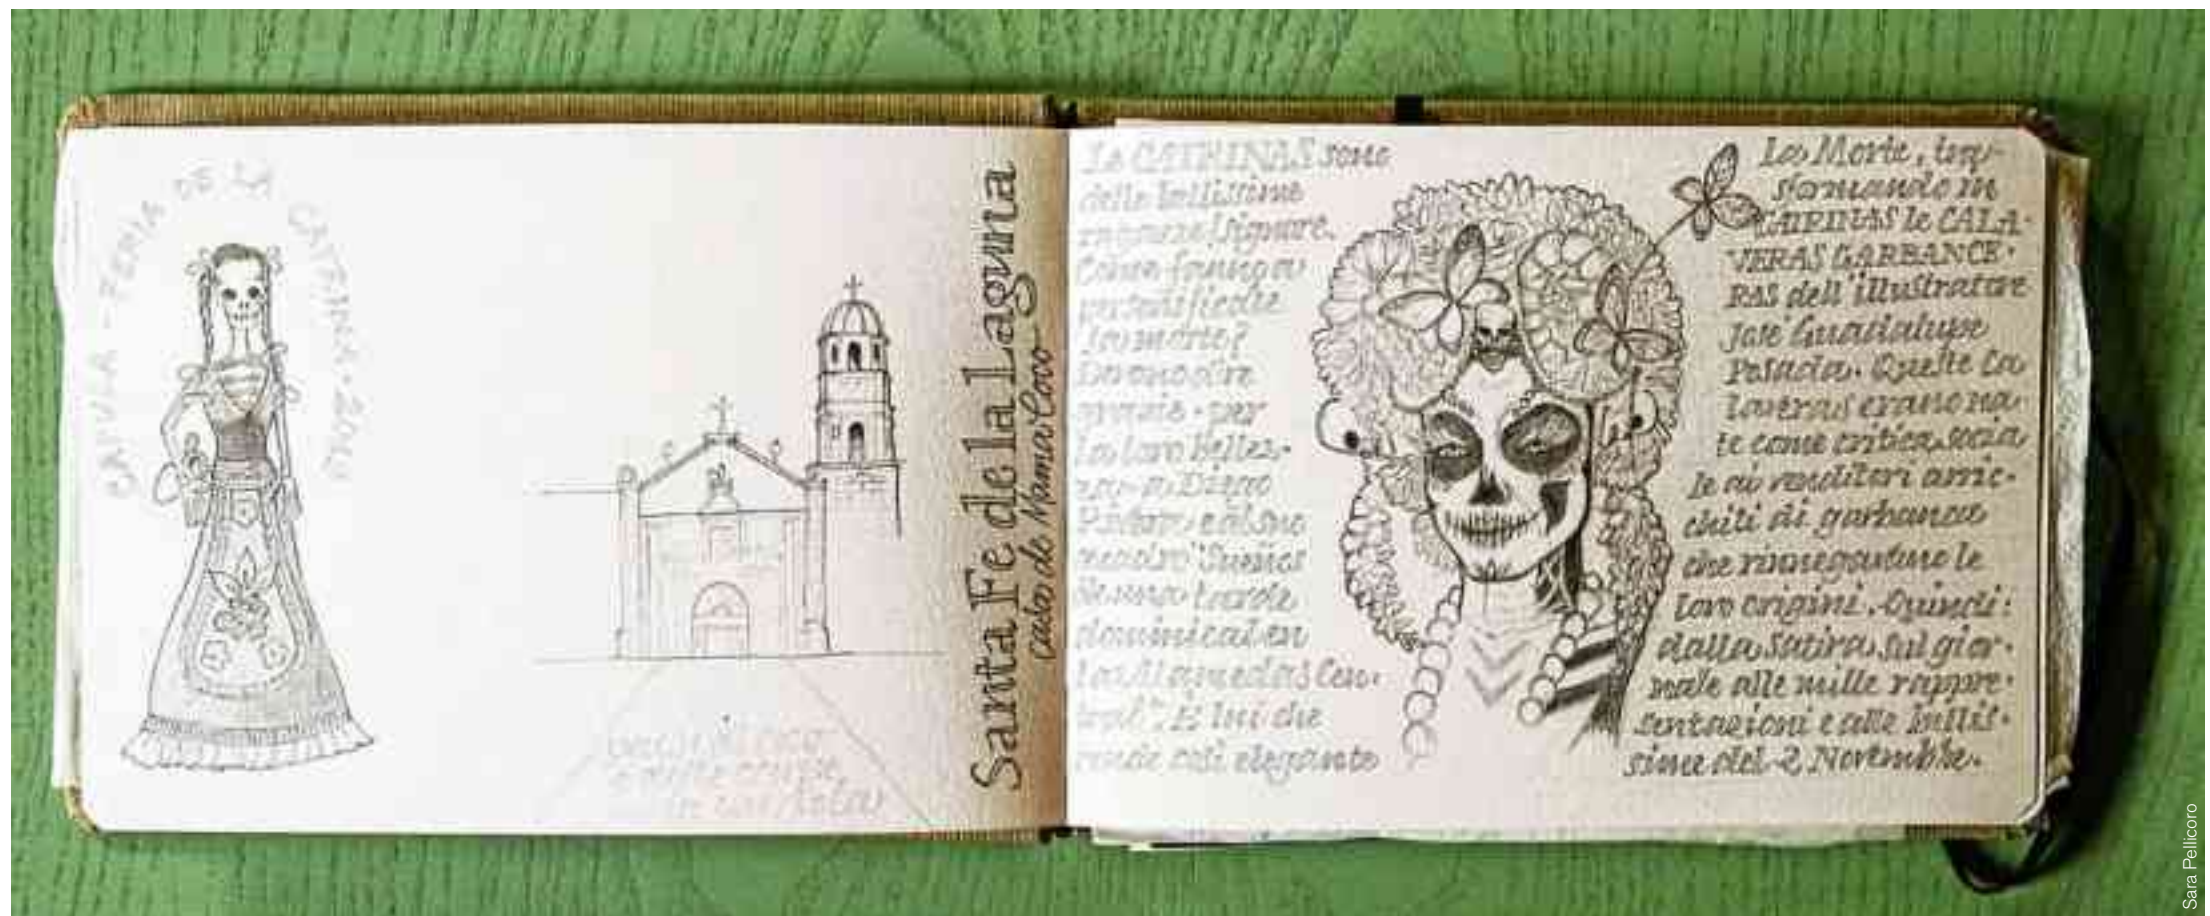 CAPULA - FERIA DE LA CATRINA - 2019
Santa Fe de la Laguna
casa de Mama Coco
LA CATRINAS sono
delle bellissime
ragazze/signore.
Come fanno a
personificare
la morte?
Dovrodire
grazie - per
la loro bellez-
za - a Diego
Rivera e al suo
"Sueños
de una tarde
dominical en
la Alameda Cen-
tral". È lui che
rende così elegante
La Morte, tras-
formando in
CATRINAS le CALA-
VERAS GARBANCE-
RAS dell'illustratore
José Guadalupe
Posada. Queste ca-
laveras erano na-
te come critica socia
le ai venditori arric-
chiti di garbanza
che rinnegavano le
loro origini. Quindi:
dalla satira sul gior-
nale alle mille rappre-
sentazioni e alle bellis-
sime del 2 Novembre.
Sara Pellicoro